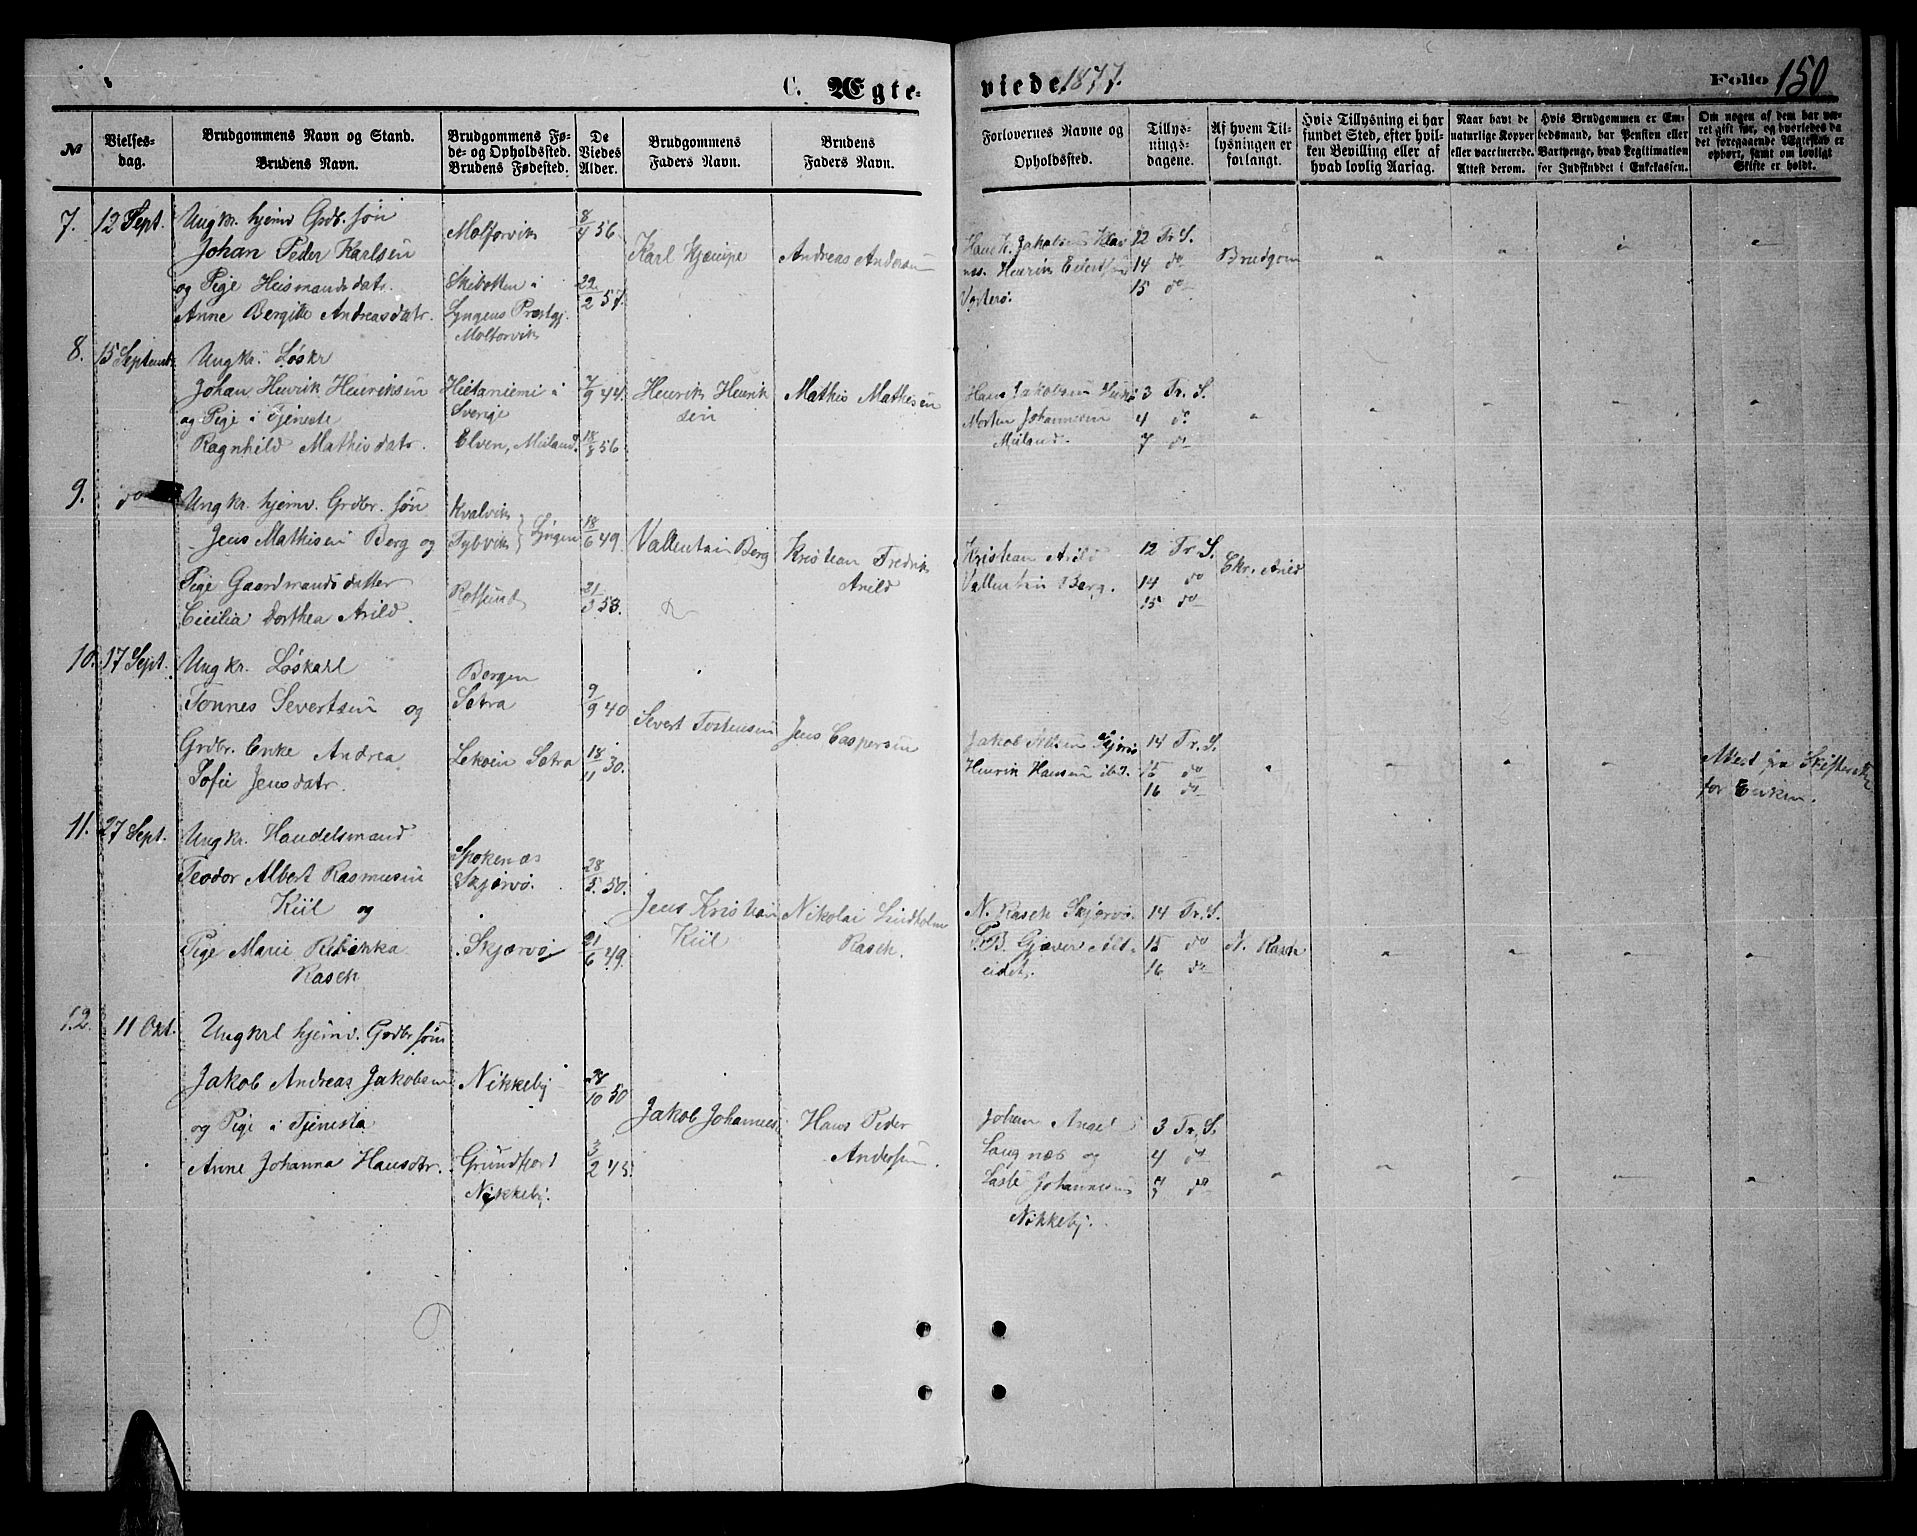 C. Ægte-
viede 1877.
Folio 150
No
Vielses-
dag.
Brudgommens Navn og Stand.
Brudens Navn.
Brudgommens Fø-
de- og Opholdssted.
Brudens Fødested.
De
Viedes
Alder.
Brudgommens
Faders Navn.
Brudens
Faders Navn.
Forlovernes Navne og
Opholdssted.
Tillys-
nings-
dagene.
Af hvem Til-
lysningen er
forlangt.
Hvis Tillysning ei har
fundet Sted, efter hvil-
ken Bevilling eller af
hvad lovlig Aarsag.
Naar havt de
naturlige Kopper
eller vaccinerede.
Attest derom.
Hvis Brudgommen er Em-
bedsmand, har Pension eller
Vartpenge, hvad Legitimation
for Indskuddet i Enkekassen.
Om nogen af dem har væ-
ret gift før, og hvorledes da
det foregaaende Ægteskab er
ophørt, samt om lovligt
Skifte er holdt.
7. 12 Sept.
Ungkr. hjemv Grdb. søn
Johan Peder Karlsen
og Pige Heismandsdatr.
Anne Bergitte Andreasdatr.
Molforvik
Skibotten i
Lyngens Prestgj.
Molforvik
8/4 56.
22/2 57.
Karl Kjempe
Andreas Andersen
Hans K. Jakobsen Klav
nes. Henrik Eilertsen
Vorterø.
12 Tr. S.
14 do
15 do
Brudgom
8. 15 Septemb.
Ungkr. Løskr
Johan Henrik Henriksen
og Pige i Tjeneste
Ragnhild Mathisdatr.
Hietaniemi i
Sverige
Elven, Meiland.
7/9 44.
18/8 56.
Henrik Henrik
sen
Mathis Mathisen
Hans Jakobsen
Morten Johannesen
Meiland.
3 Tr. S.
4 do
7 do
9. do
Ungkr. hjemv. Grdbr. søn
Jens Mathisen Berg og
Pige Gaardmandsdatter
Cicilia Dorthea Arild.
Kvalvik
Tybvik } Lyngen
Rotsund
18/6 49.
21/3 53.
Vallentin Berg
Kristian Fredrik
Arild
Kristian Arild
Vallentin Berg.
12 Tr. S.
14 do
15 do
Ckr. Arild
10. 17 Sept.
Ungkr. Løskarl
Tønnes Severtsen og
Grdbr. Enke Andrea
Sofie Jensdatr.
Bergen
Satra
Lekoen Satra
9/9 40
18/11 30.
Severt Tostensen
Jens Caspersen
Jakob Nilsen Skjervø
Henrik Hansen ibd.
14 Tr. S.
15 do
16 do
Attest fra Skifteretten
for Enken.
11. 27 Sept.
Ungkr. Handelsmand
Teodor Albert Rasmusen
Kiil og
Pige Marie Rebekka
Rasch
Spokenæs
Skjervø.
Skjærvø
28/5. 50.
21/6 49.
Jens Kristian
Kiil
Nikolai Lindholm
Rasch.
N. Rasch Skjærvø.
P. B. Gjæver Alt-
eidet.
14 Tr. S.
15 do
16 do
N. Rasch
12. 11 Okt.
Ungkrl hjemv. Grdbr søn
Jakob Andreas Jakobsen
og Pige i Tjenesta
Anne Johanna Hansdtr.
Nikkeby
Grundfjord
Nikkeby.
28/10 50
3/2 45.
Jakob Johannes
Hans Peder
Andersen.
Johan Angel
Laugnæs og
Lasbe Johannesen
Nikkeby.
3 Tr. S.
4 do
7 do